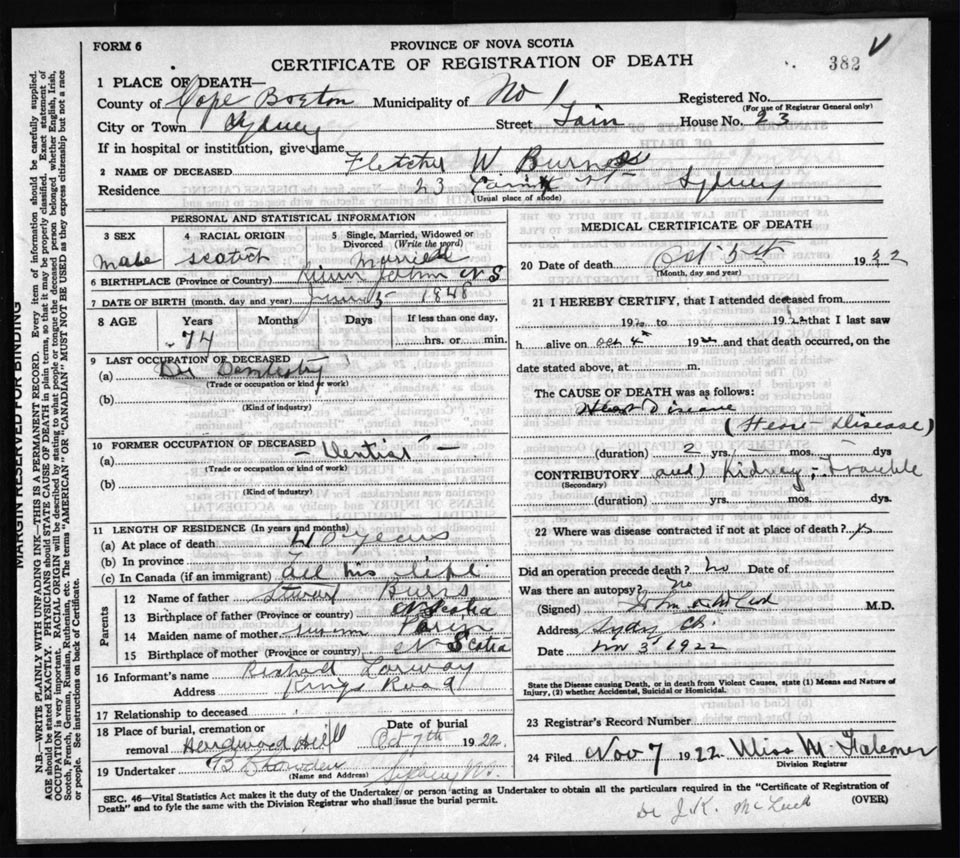 FORM 6
PROVINCE OF NOVA SCOTIA
CERTIFICATE OF REGISTRATION OF DEATH
382
1 PLACE OF DEATH—
County of Cape Breton Municipality of No 1 Registered No.
(For use of Registrar General only)
City or Town Sydney Street House No. 23
If in hospital or institution, give name
2 NAME OF DECEASED Fletcher W Burns
Residence 23 St Sydney
(Usual place of abode)
PERSONAL AND STATISTICAL INFORMATION
3 SEX 4 RACIAL ORIGIN 5 Single, Married, Widowed or Divorced (Write the word)
Male Scotch Married
6 BIRTHPLACE (Province or Country) N S
7 DATE OF BIRTH (month, day and year) June 5 1848
8 AGE Years Months Days If less than one day,
74 hrs. or min.
9 LAST OCCUPATION OF DECEASED
(a) Dr Dentistry
(Trade or occupation or kind of work)
(b)
(Kind of industry)
10 FORMER OCCUPATION OF DECEASED
(a) — Dentist —
(Trade or occupation or kind of work)
(b)
(Kind of industry)
11 LENGTH OF RESIDENCE (In years and months)
(a) At place of death 40 years
(b) In province
(c) In Canada (if an immigrant) all his life
Parents
12 Name of father Burns
13 Birthplace of father (Province or country) N Scotia
14 Maiden name of mother
15 Birthplace of mother (Province or country) N Scotia
16 Informant's name Richard Lorway
Address Kings Road
17 Relationship to deceased
18 Place of burial, cremation or removal Hardwood Hill Date of burial Oct 7th 1922.
19 Undertaker Sydney N.S.
(Name and Address)
MEDICAL CERTIFICATE OF DEATH
20 Date of death Oct 5th 1922
(Month, day and year)
21 I HEREBY CERTIFY, that I attended deceased from
19 to 1922 that I last saw
h alive on Oct 4 19 and that death occurred, on the
date stated above, at m.
The CAUSE OF DEATH was as follows:
Heart Disease
(Heart Disease)
(duration) 2 yrs. — mos. — dys
CONTRIBUTORY and) Kidney Trouble
(Secondary)
(duration) yrs. mos. dys.
22 Where was disease contracted if not at place of death?
Did an operation precede death? No Date of
Was there an autopsy? No
(Signed) M.D.
Address Sydney C.B.
Date Nov 3 1922
State the Disease causing Death, or in death from Violent Causes, state (1) Means and Nature of Injury, (2) whether Accidental, Suicidal or Homicidal.
23 Registrar's Record Number
24 Filed Nov 7 1922 Miss M Falconer
Division Registrar
SEC. 46—Vital Statistics Act makes it the duty of the Undertaker or person acting as Undertaker to obtain all the particulars required in the "Certificate of Registration of Death" and to fyle the same with the Division Registrar who shall issue the burial permit. (OVER)
Dr J. K.
MARGIN RESERVED FOR BINDING
N.B.—WRITE PLAINLY WITH UNFADING INK—THIS IS A PERMANENT RECORD. Every item of information should be carefully supplied.
AGE should be stated EXACTLY. PHYSICIANS should STATE CAUSE OF DEATH in plain terms, so that it may be properly classified. Exact statement of
OCCUPATION is very important. RACIAL ORIGIN will be described by stating to what people or tongue the deceased person belonged whether English, Irish,
Scotch, French, German, Russian, Ruthenian, etc. The terms "AMERICAN" OR "CANADIAN" MUST NOT BE USED as they express citizenship but not a race
or people. See instructions on back of Certificate.